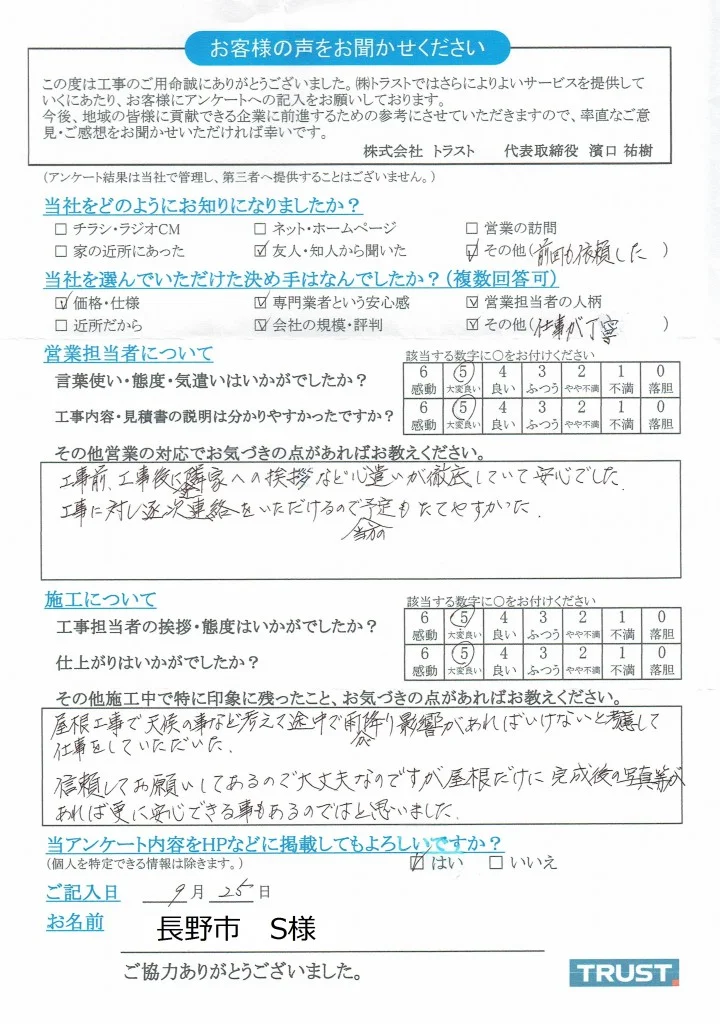 お客様の声をお聞かせください
この度は工事のご用命誠にありがとうございました。㈱トラストではさらによりよいサービスを提供して
いくにあたり、お客様にアンケートへの記入をお願いしております。
今後、地域の皆様に貢献できる企業に前進するための参考にさせていただきますので、率直なご意
見・ご感想をお聞かせいただければ幸いです。
株式会社 トラスト 代表取締役 濱口 祐樹
(アンケート結果は当社で管理し、第三者へ提供することはございません。)
当社をどのようにお知りになりましたか?
□ チラシ・ラジオCM □ ネット・ホームページ □ 営業の訪問
□ 家の近所にあった ☑ 友人・知人から聞いた ☑ その他(前回も依頼した)
当社を選んでいただけた決め手はなんでしたか?(複数回答可)
☑ 価格・仕様 ☑ 専門業者という安心感 ☑ 営業担当者の人柄
□ 近所だから ☑ 会社の規模・評判 ☑ その他(仕事が丁寧)
営業担当者について 該当する数字に○をお付けください
言葉使い・態度・気遣いはいかがでしたか? 6 ⑤ 4 3 2 1 0
感動 大変良い 良い ふつう やや不満 不満 落胆
工事内容・見積書の説明は分かりやすかったですか? 6 ⑤ 4 3 2 1 0
感動 大変良い 良い ふつう やや不満 不満 落胆
その他営業の対応でお気づきの点があればお教えください。
工事前、工事後に隣家への挨拶など心遣いが徹底していて安心でした.
工事に対し逐次連絡をいただけるので予定もたてやすかった.
当方の
施工について 該当する数字に○をお付けください
工事担当者の挨拶・態度はいかがでしたか? 6 ⑤ 4 3 2 1 0
感動 大変良い 良い ふつう やや不満 不満 落胆
仕上がりはいかがでしたか? 6 ⑤ 4 3 2 1 0
感動 大変良い 良い ふつう やや不満 不満 落胆
その他施工中で特に印象に残ったこと、お気づきの点があればお教えください。
屋根工事で天候の事など考えて途中で雨降り影響があればいけないと考慮して
仕事をしていただいた.
信頼してお願いしてあるので大丈夫なのですが屋根だけに完成後の写真等が
あれば更に安心できる事もあるのではと思いました.
当アンケート内容をHPなどに掲載してもよろしいですか?
(個人を特定できる情報は除きます。) ☑ はい □ いいえ
ご記入日 9月 25日
お名前 長野市 S様
ご協力ありがとうございました。
TRUST.